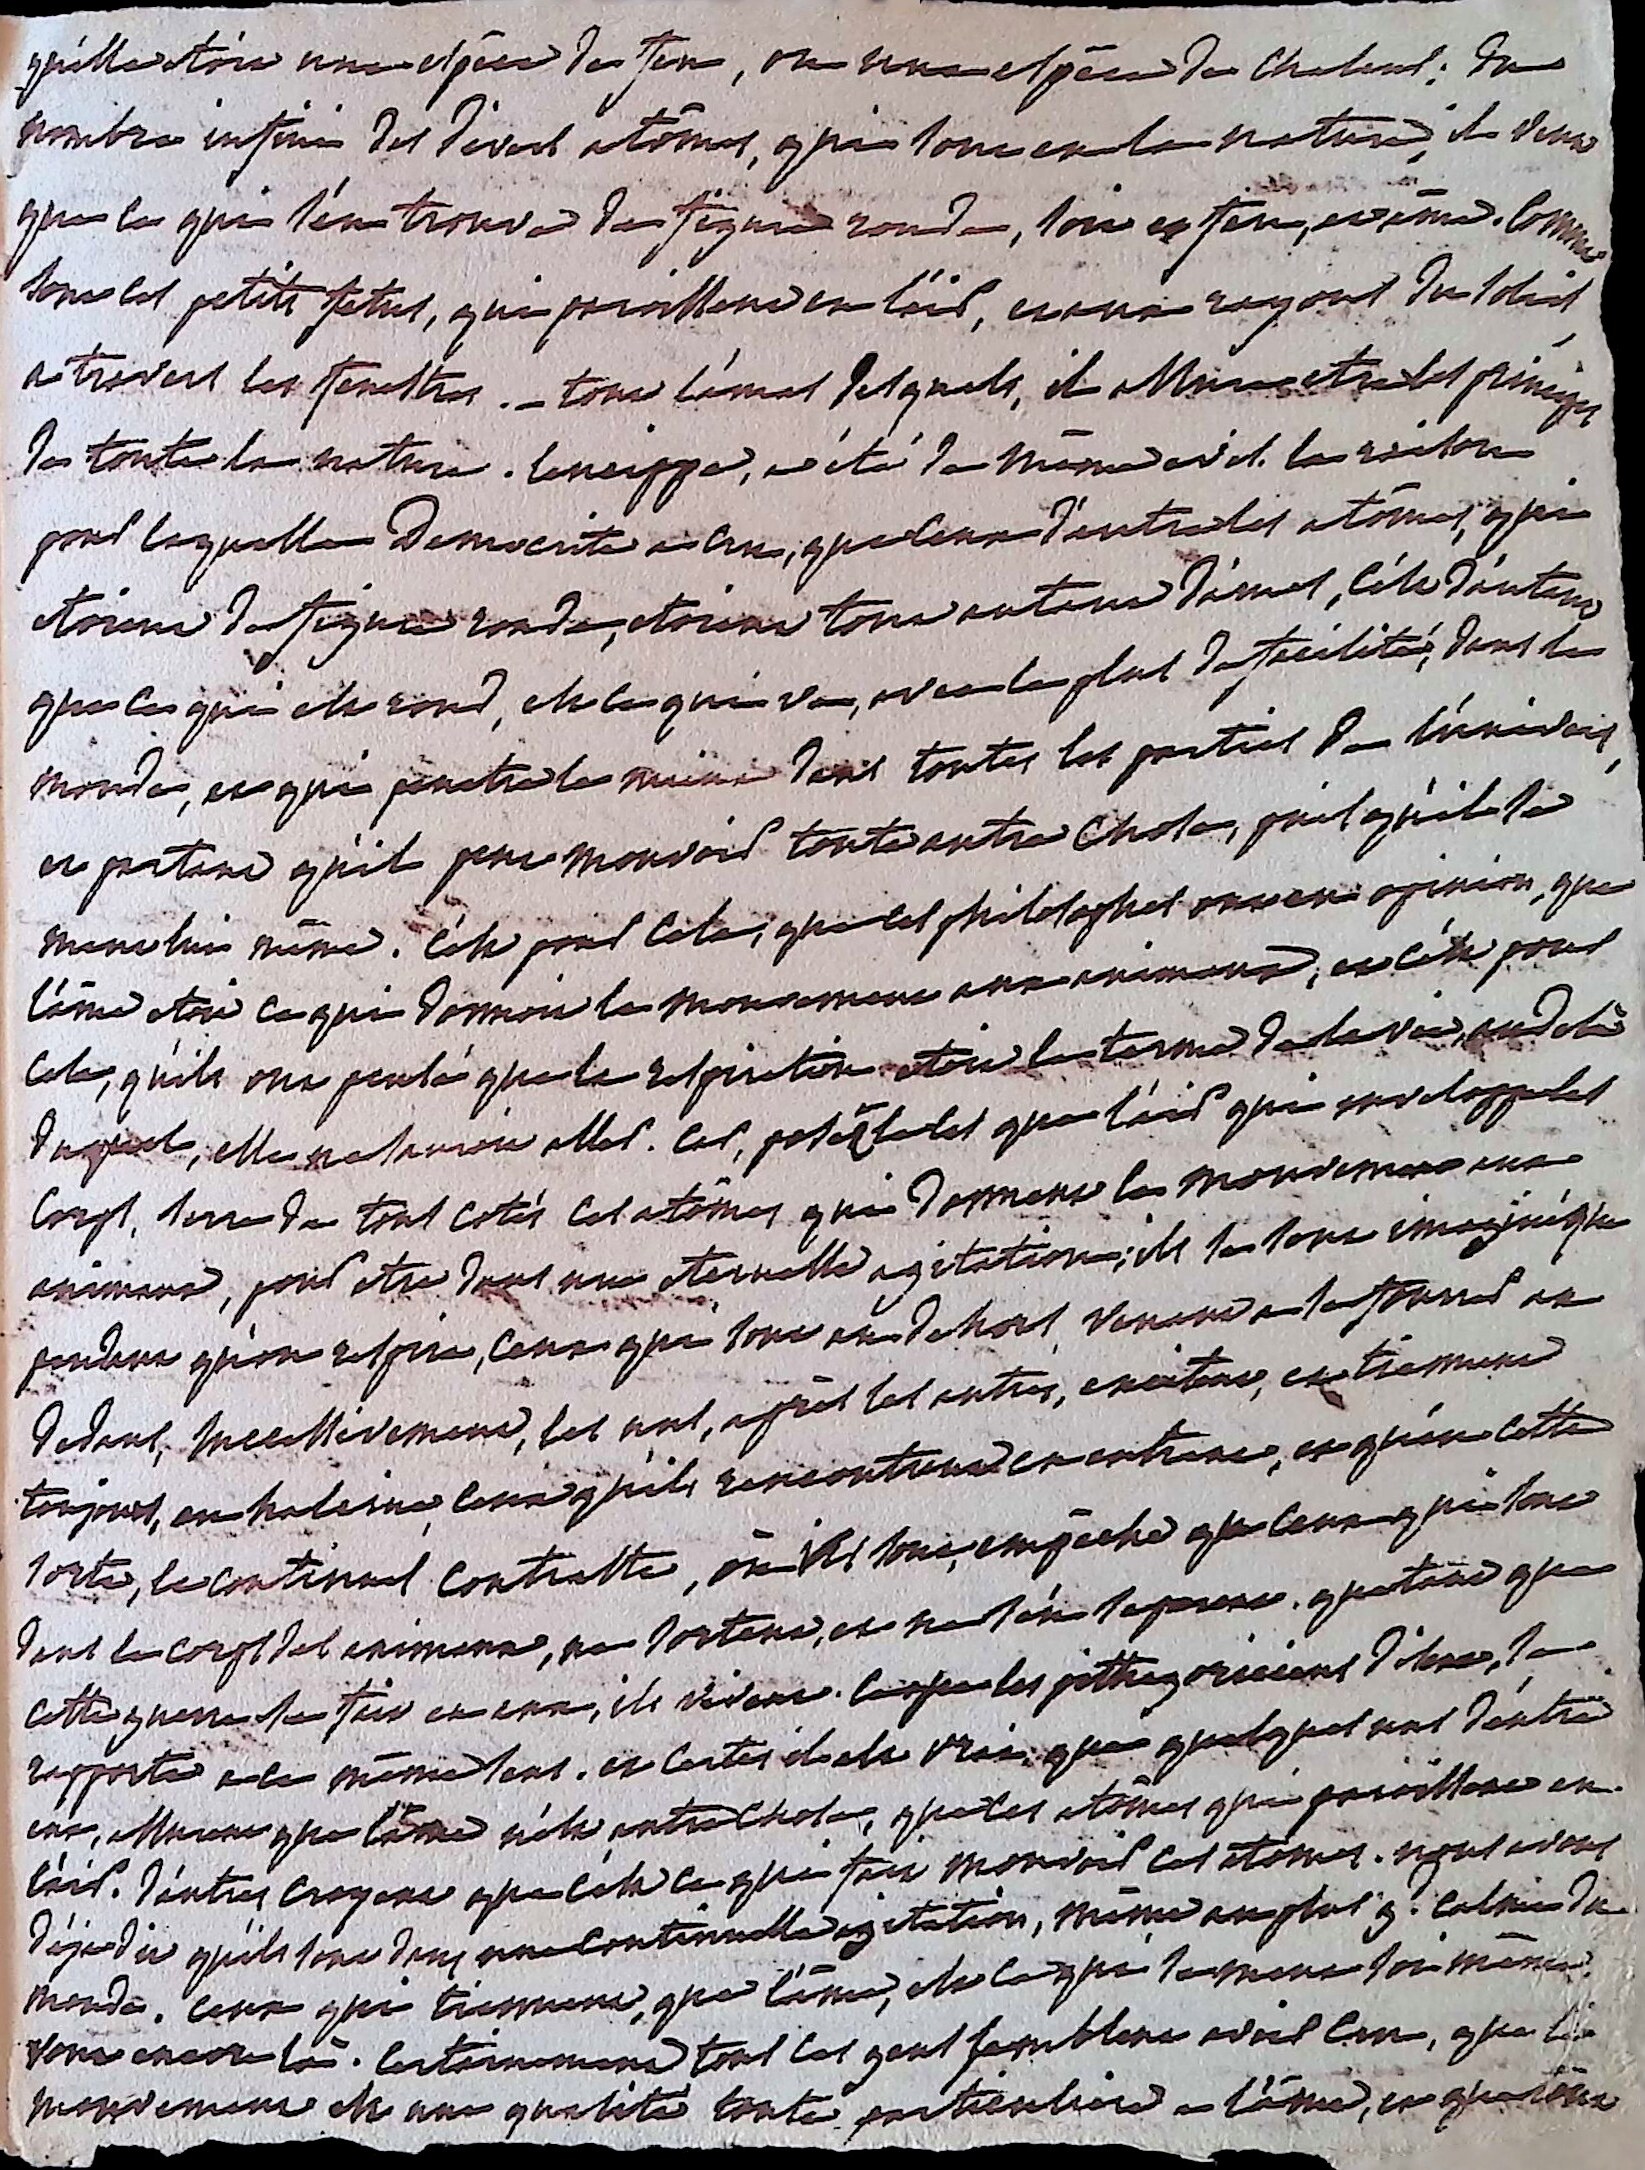 qu'elle etoit une espéce de feu, ou une espéce de chaleur; du
nombre infini des divers atômes, qui sont en la nature, il veut
que ce qui s'en trouve de figure ronde, soit et feu, et âme. Comme
sont ces petits fetus, qui paroissent en l'air, et aux rayons du soleil
a travers les fenestres. – tout l'amas desquels, il assure etre les principes
de toute la nature. leucippe, a été de même avis. la raison
pour laquelle Democrite a cru, que ceux d'entre les atômes, qui
etoient de figure ronde, etoient tout autant d'ames, c'est d'autant
que ce qui est rond, est ce qui va, avec le plus de facilité, dans le
monde, et qui penetre le mieux dans toutes les parties de l'univers,
et partant qu'il peut mouvoir toute autre chose, puisqu'il se
meut lui même. c'est pour cela, que ces philosophes ont eu opinion, que
l'âme etoit ce qui donnoit le mouvement aux animaux, et c'est pour
cela, qu'ils ont pensé que la respiration etoit le terme de la vie, au dela
duquel, elle ne sauroit aller. car, posé le cas que l'air qui enveloppe les
corps, serre de tous cotés ces atômes qui donnent le mouvement aux
animaux, pour etre dans une eternelle agitation; ils se sont imaginé que
pendant qu'on respire, ceux qui sont au dehors, venant a se fourrer au
dedans, successivement, les uns, après les autres, excitent, et tiennent
toujours, en haleine, ceux qu'ils rencontrent en entrant, et qu'en cette
sorte, le continuel contraste, où ils sont, empêche que ceux qui sont
dans le corps des animaux, ne sortent, et ne s'en separent. que tant que
cette guerre se fait en eux, ils vivent. Ce que les pithagoriciens disent, se
rapporte a ce même sens. et certes il est vrai, que quelques uns d'entre
eux, assurent que l'âme n'est autre chose, que ces atômes qui paroissent en
l'air. d'autres croyent que c'est ce qui fait mouvoir ces atomes. nous avons
déja dit qu'ils sont dans une continuelle agitation, même au plus gd. calme du
monde. ceux qui tiennent, que l'âme, est ce qui se meut soi même
vont encore là. Certainement tous ces gens semblent avoir cru, que le
mouvement est une qualité toute particuliere a l'âme, et que